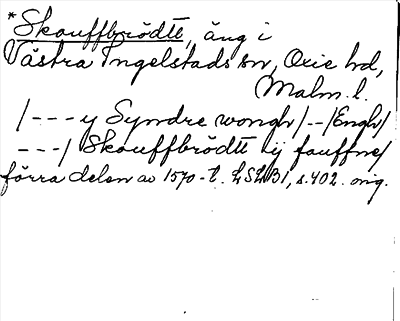 *Skouffbrödtt, äng i
Västra Ingelstads sn, Oxie hd,
Malm. l.
/--- y Syndre wongh/--/Engh/
---/ Skouffbrödtt ij fauffne/
förra delen av 1570-t. LSLB1, s. 402. orig.